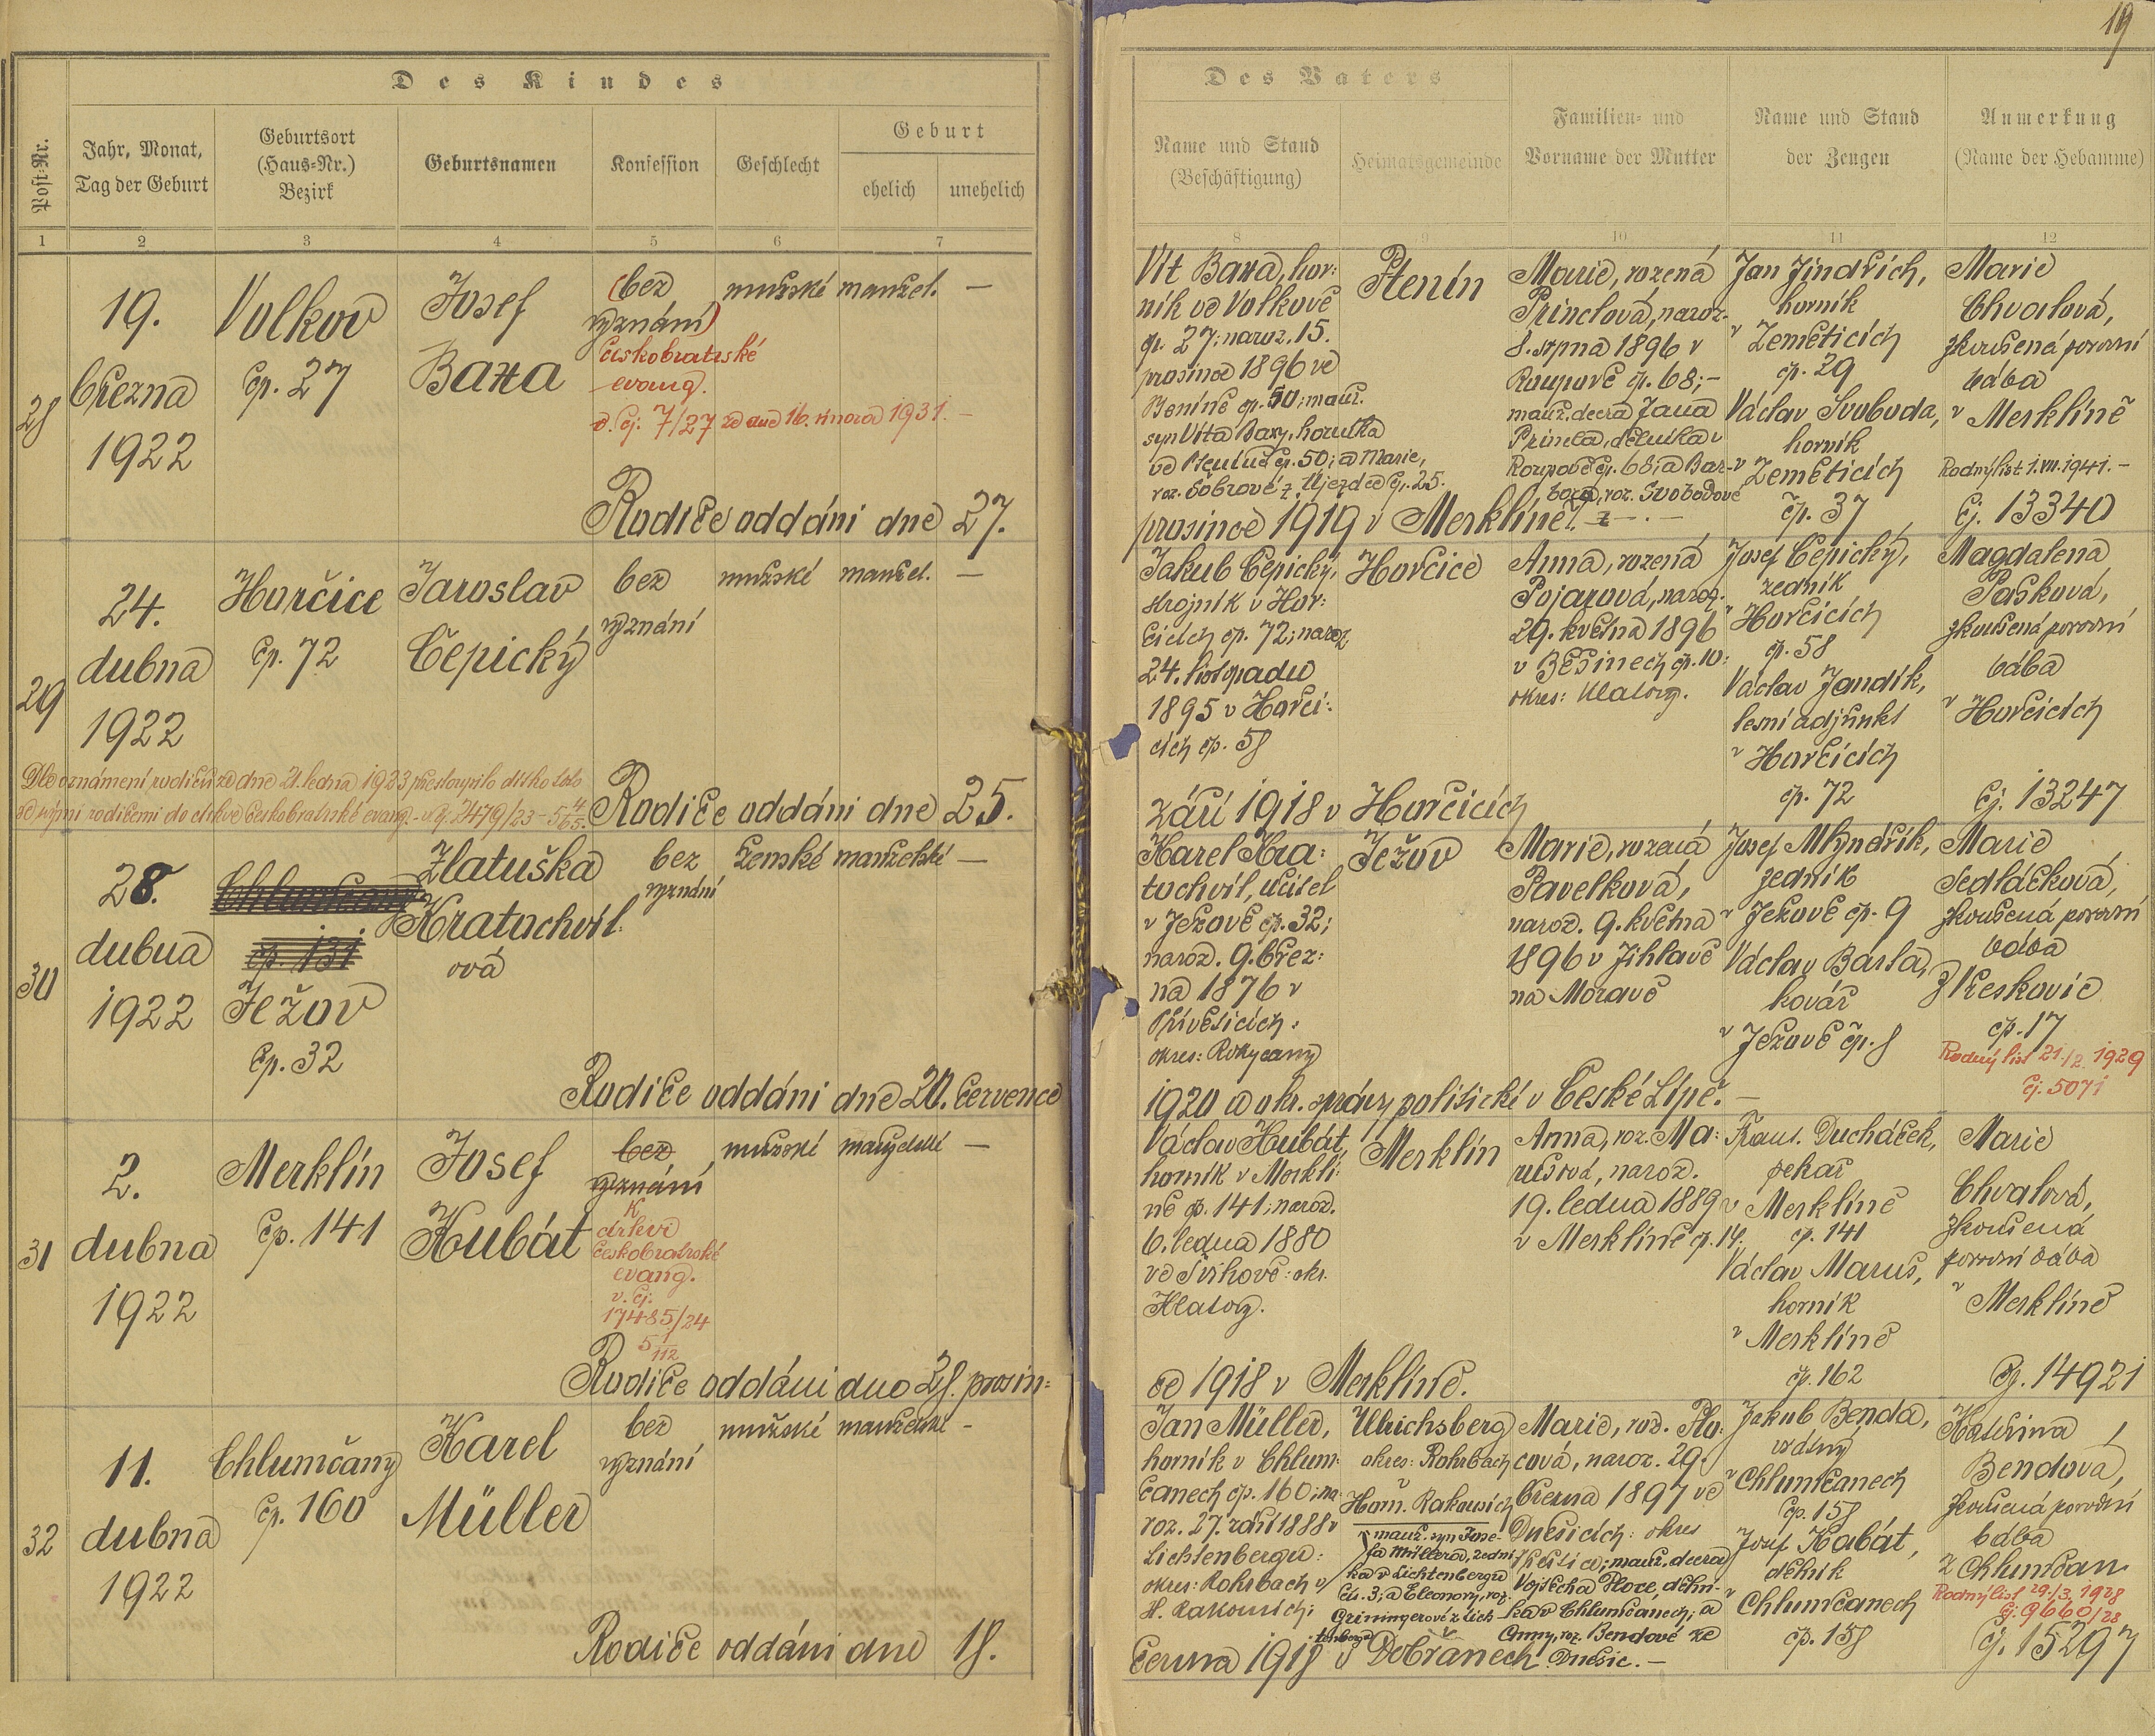 19
Des Kindes
Post-Nr.
Jahr, Monat,
Tag der Geburt
Geburtsort
(Haus-Nr.)
Bezirk
Geburtsnamen
Konfession
Geschlecht
Geburt
ehelich
unehelich
1 2 3 4 5 6 7
Des Vaters
Name und Stand
(Beschäftigung)
Heimatsgemeinde
Familien- und
Vorname der Mutter
Name und Stand
der Zeugen
Anmerkung
(Name der Hebamme)
8 9 10 11 12
28
19.
března
1922
Volkov
čp. 27
Josef
Baxa
(bez
vyznání)
českobratrské
evang.
v. čj. 7/27 ze dne 16. února 1931. –
mužské
manžel.
—
Rodiče oddáni dne 27.
Vít Baxa, hor:
ník ve Volkově
čp. 27; naroz. 15.
prosince 1896 ve
čp. 50; manž.
syn Víta Baxy, horníka
čp. 50; a Marie,
z Újezda čp. 25.
prosince 1919 v Merklíně.
Ptenín
Marie, rozená
Princlová, naroz.
8. srpna 1896 v
Roupově čp. 68; –
manž. dcera Jana
Princla, dělníka v
Roupově čp. 68; a Bar-
bory, roz. Svobodové
Jan Jindřich,
horník
v Zeměticích
čp. 29
Václav Svoboda,
horník
v Zeměticích
čp. 37
Marie
Chvalová,
zkoušená porodní
bába
v Merklíně
Rodný list 1. VII. 1941. –
Čj. 13340
29
24.
dubna
1922
Horčice
čp. 72
Jaroslav
Čepický
bez
vyznání
mužské
manžel.
—
Dle oznámení rodičů ze dne 21. ledna 1923 přestoupilo dítko toto
se svými rodičemi do církve českobratrské evang. – v. čj. 2479/23 –
Rodiče oddáni dne 25.
Jakub Čepický,
strojník v Hor:
čicích čp. 72; naroz.
24. listopadu
1895 v Horči:
cích čp. 58
září 1918 v Horčicích
Horčice
Anna, rozená
Pojarová, naroz.
29. května 1896
v Běšinech čp. 10:
okres: Klatovy.
Josef Čepický,
zedník
v Horčicích
čp. 58
Václav Jandík,
lesní adjunkt
v Horčicích
čp. 72
Magdalena
Pašková,
zkoušená porodní
bába
v Horčicích
Čj. 13247
30
28.
dubna
1922
čp. 131
Ježov
čp. 32
Zlatuška
Kratochvíl:
ová
bez
vyznání
ženské
manželské
—
Rodiče oddáni dne 20. července
Karel Kra:
tochvíl, učitel
v Ježově čp. 32;
naroz. 9. břez:
na 1876 v
Přívěticích:
okres: Rokycany
1920 u okr. správy politické v České Lípě. –
Ježov
Marie, rozená
Pavelková,
naroz. 9. května
1896 v Jihlavě
na Moravě
Josef Mlynářík,
zedník
v Ježově čp. 9
Václav Barta,
kovář
v Ježově čp. 8
Marie
Sedláčková,
zkoušená porodní
bába
čp. 17
Rodný list 21./2. 1929
Čj. 5071
31
2.
dubna
1922
Merklín
čp. 141
Josef
Kubát
bez
vyznání
K
církvi
českobratrské
evang.
v. čj.
17485/24
mužské
manželské
—
Rodiče oddáni dne 28. prosin:
Václav Kubát,
horník v Merklí:
ně čp. 141; naroz.
6. ledna 1880
ve Švihově: okr.
Klatovy.
ce 1918 v Merklíně.
Merklín
Anna, roz. Ma:
rušová, naroz.
19. ledna 1889
v Merklíně čp. 14.
Frant. Ducháček,
pekař
v Merklíně
čp. 141
Václav Maruš,
horník
v Merklíně
čp. 162
Marie
Chvalová,
zkoušená
porodní bába
v Merklíně
Čj. 14921
32
11.
dubna
1922
Chlumčany
čp. 160
Karel
Müller
bez
vyznání
mužské
manželské
–
Rodiče oddáni dne 18.
Jan Müller,
horník v Chlum:
čanech čp. 160; na:
roz. 27. září 1888 v
Lichtenbergu:
okres: Rohrbach v
H. Rakousích;
června 1918 v Dobřanech
Ulrichsberg
okres: Rohrbach
v
Horn. Rakousích
manž. syn Jose-
fa Müllera, zední-
ka v Lichtenbergu
čís. 3; a Eleonory, roz.
Griningerové z Lich-
tenbergu
Marie, roz. Plo:
cová, naroz. 29.
března 1897 ve
Dnešicích: okres
Přeštice; manž. dcera
Vojtěcha Ploce, dělní-
ka v Chlumčanech; a
Anny, roz. Bendové ze
Dnešic. –
Jakub Benda,
v Chlumčanech
čp. 158
Josef Kabát,
dělník
v Chlumčanech
čp. 158
Kateřina
Bendová,
zkoušená porodní
bába
z Chlumčan
Rodný list 29./3. 1928
Čj. 9660/28
Čj. 15297